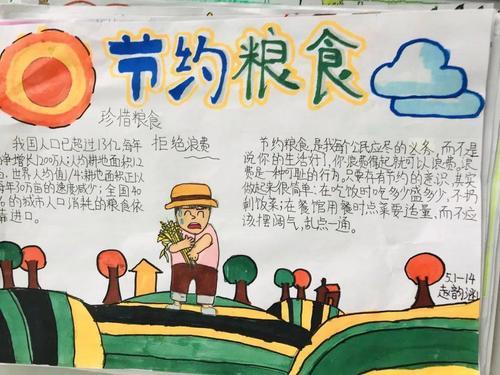 节约粮食
珍惜粮食
拒绝浪费
我国人口已超过13亿,每年
争增长1200万人;人均耕地面积1.2
亩,世界人均值1/4;耕地面积正以
每年30万亩的速度减少;全国40
%的城市人口消耗的粮食依
靠进口。
节约粮食,是我每个公民应尽的义务,而不是
说你的生活好了,你浪费得起就可以浪费。浪
费是一种可耻的行为。只要存有节约的意识,其实
做起来很简单:在吃饭时吃多少盛多少,不扔
剩饭菜;在餐馆用餐时点菜要适量,而不应
该摆阔气,乱点一通。
5.1-14
赵韵涵